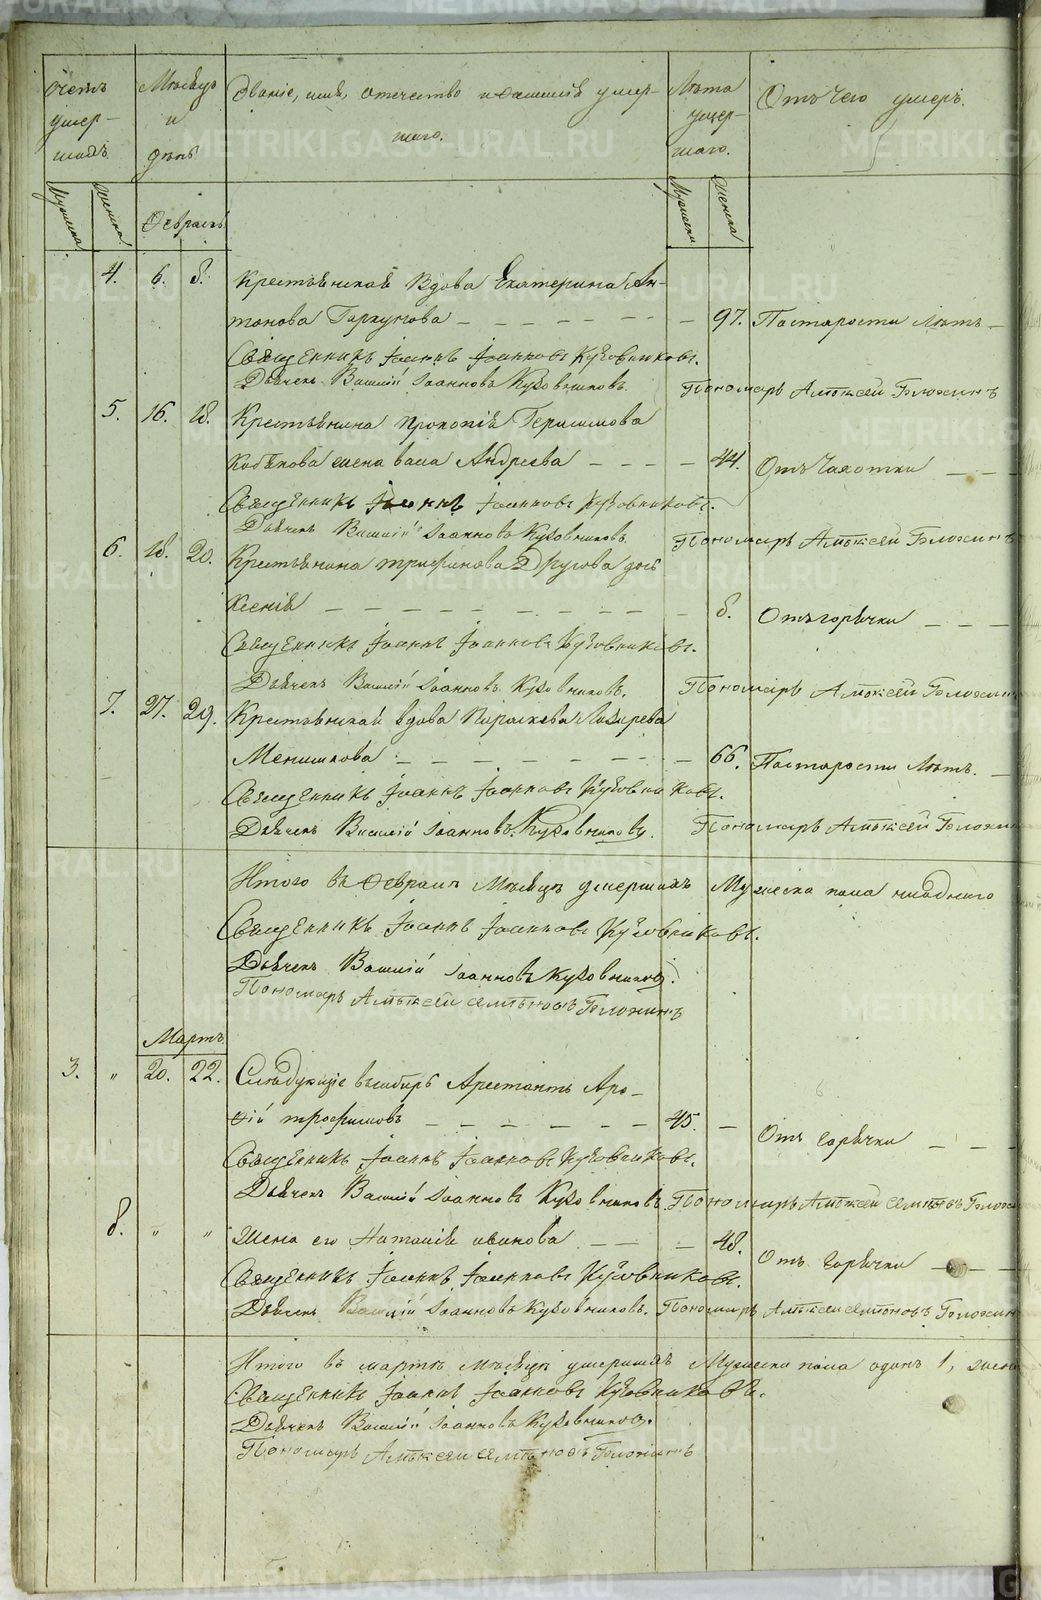 Счетъ умер-шихъ.
Мѣсяцъ и день
Званіе, имя, отечество и фамилія умер-
шаго.
Лѣта умер-шаго.
Отъ чего умеръ.
Мужеска Женска Февраль Мужеска Женска
4. 6. 8. Крестьянская вдова Екатерина Ан-
тонова Горкунова 97. По старости лѣтъ
Священникъ Іоаннъ Іоанновъ Кузовниковъ.
Дьячекъ Василій Іоанновъ Кузовниковъ. Пономарь Алѣксей Блохинъ
5. 16. 18. Крестьянина Прокопія Герасимова
Кобякова жена Васа Андреева 44. Отъ Чахотки
Священникъ Іоаннъ Іоанновъ Кузовниковъ.
Дьячекъ Василій Іоанновъ Кузовниковъ Пономарь Алѣксей Блохинъ
6. 18. 20. Крестьянина Трифонова Другова дочь
Ксенія 8. Отъ горячки
Священникъ Іоаннъ Іоанновъ Кузовниковъ.
Дьячекъ Василій Іоанновъ Кузовниковъ. Пономарь Алѣксей Блохинъ
7. 27. 29. Крестьянская вдова Параскева Лазарева
Меншикова 66. По старости лѣтъ.
Священникъ Іоаннъ Іоанновъ Кузовниковъ.
Дьячекъ Василій Іоанновъ Кузовниковъ. Пономарь Алѣксей
Итого въ Февралѣ Мѣсяцѣ умершихъ Мужеска пола ниодного
Священникъ Іоаннъ Іоанновъ Кузовниковъ.
Дьячекъ Василій Іоанновъ Кузовниковъ.
Пономарь Алѣксей Семѣновъ Блохинъ
Мартъ
3. " 20. 22. Слѣдующіе въ Сибирь Арестантъ
Трофимовъ 45. Отъ горячки
Священникъ Іоаннъ Іоанновъ Кузовниковъ.
Дьячекъ Василій Іоанновъ Кузовниковъ. Пономарь Алѣксей Семѣновъ
8. " " Жена его Наталія Иванова 48. Отъ горячки
Священникъ Іоаннъ Іоанновъ Кузовниковъ.
Дьячекъ Василій Іоанновъ Кузовниковъ. Пономарь Алѣксей Семѣновъ Блохинъ
Итого въ мартѣ мѣсяцѣ умершихъ Мужеска пола одинъ 1,
Священникъ Іоаннъ Іоанновъ Кузовниковъ.
Дьячекъ Василій Іоанновъ Кузовниковъ.
Пономарь Алѣксей Семѣновъ Блохинъ
METRIKI.GASO-URAL.RU